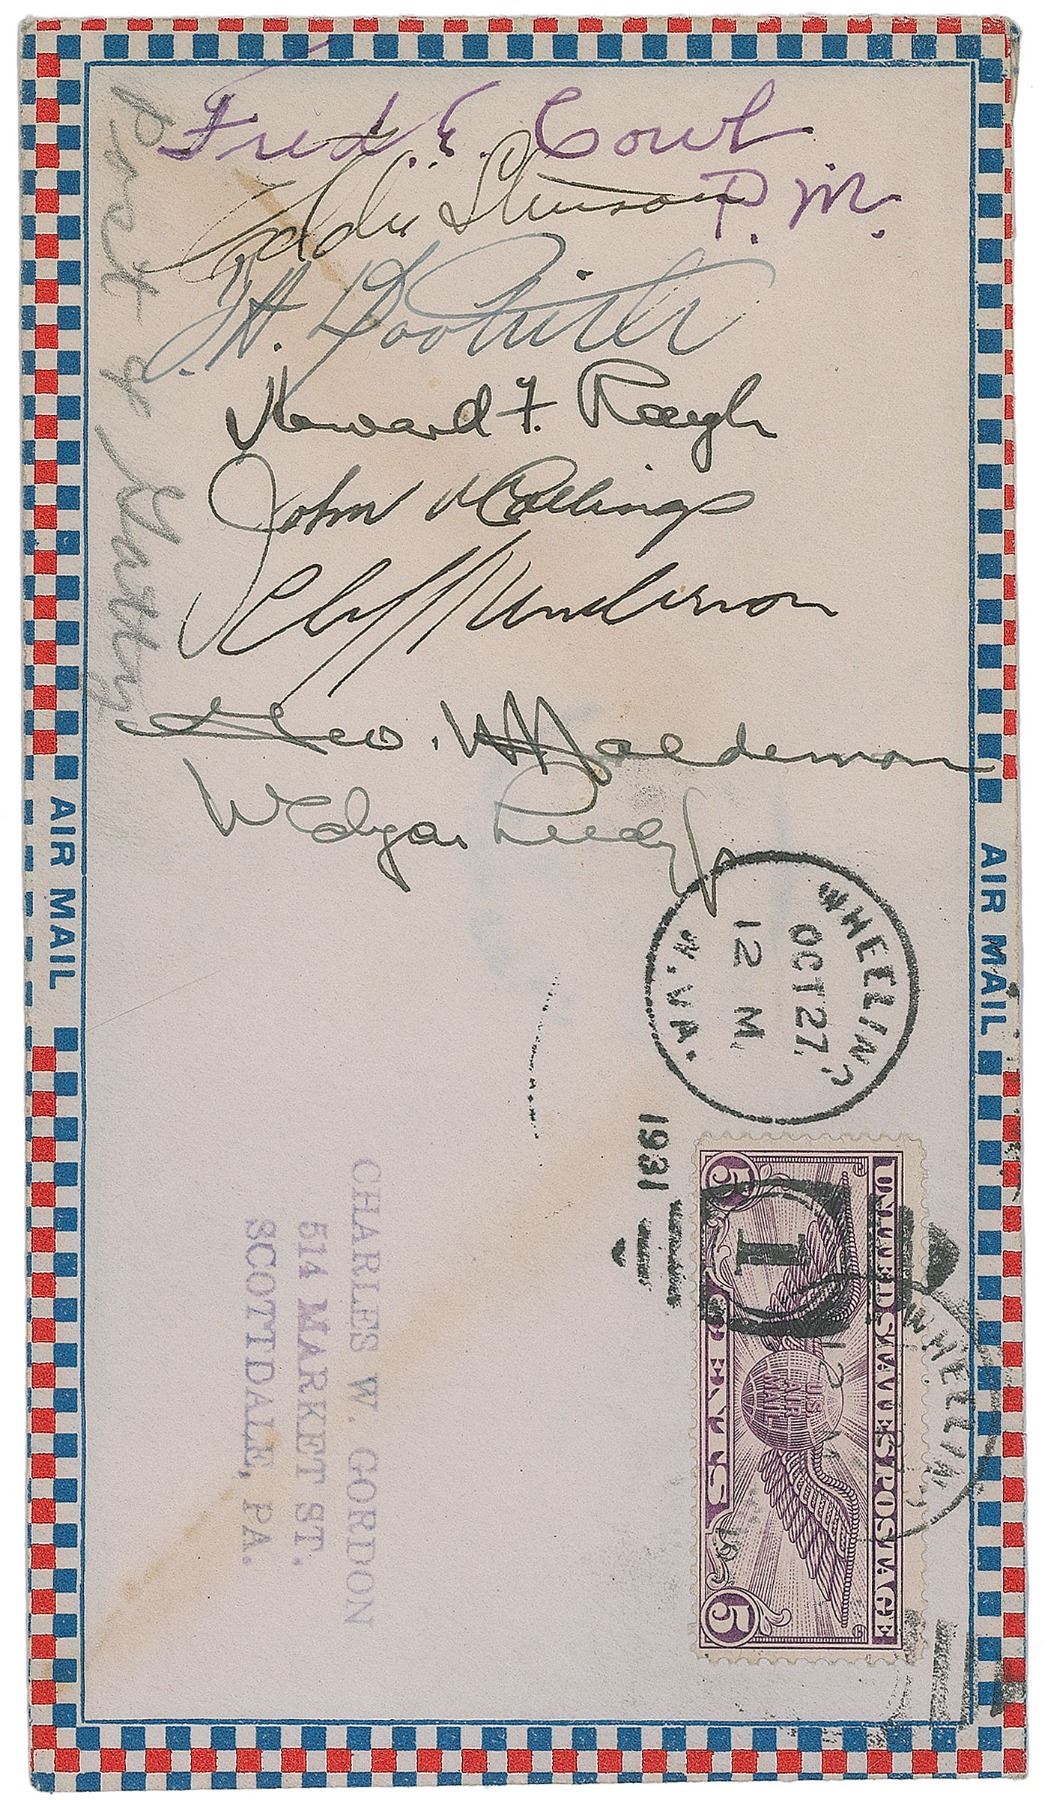 Fred. E. Cowl
P.M.
Eddie Stinson
J. H. Doolittle
Howard F. Rough
John Collings
Cliff Henderson
Geo. W. Haldeman
W Edgar Reedy
Post & Gatty
AIR MAIL
AIR MAIL
WHEELING
OCT 27
12 M
W. VA.
1931
UNITED STATES POSTAGE
U.S.
AIR
MAIL
5 CENTS 5
1
WHEELIN
12 M
CHARLES W. GORDON
514 MARKET ST.
SCOTTDALE, PA.